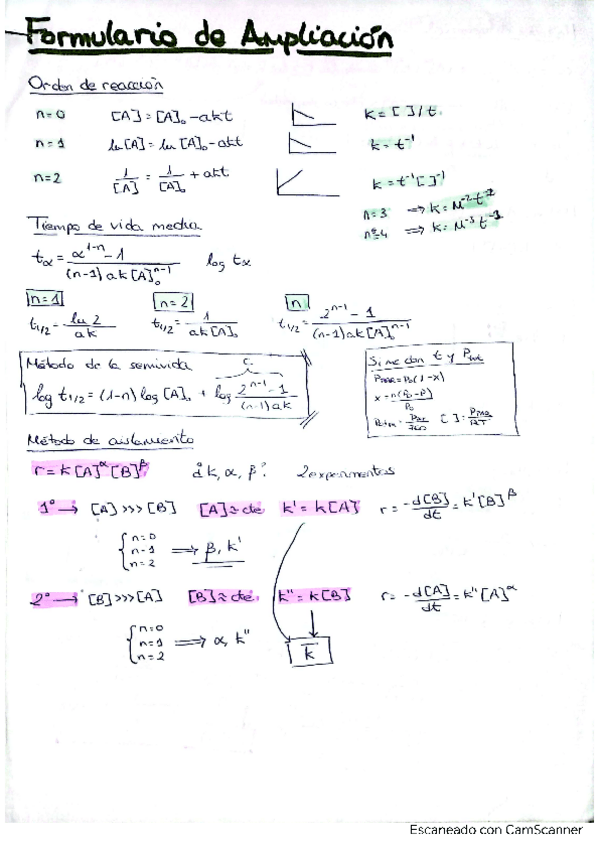 Formulario de Ampliación
Orden de reacción
n=0 [A]=[A]₀-akt k=[ ]/t.
n=1 ln[A]=ln[A]₀-akt k=t⁻¹
n=2 1/[A] = 1/[A]₀ + akt k=t⁻¹[ ]⁻¹
n=3 ⇒ k=M⁻²t⁻¹
n=4 ⇒ k=M⁻³t⁻¹
Tiempo de vida media
tα = α¹⁻ⁿ-1/(n-1)ak[A]₀ⁿ⁻¹ log tα
n=1 n=2 n
t1/2 = ln 2/ak t1/2 = 1/ak[A]₀ t1/2 = 2ⁿ⁻¹-1/(n-1)ak[A]ⁿ⁻¹
Método de la semivida c.
log t1/2 = (1-n) log [A]₀ + log 2ⁿ⁻¹-1/(n-1)ak
Si me dan t y
x=n(P₀-P)/P₀
Método de aislamiento
r=k[A]ᵅ[B]ᵝ ¿k, α, β? 2 experimentos
1º → [A]>>>[B] [A]≈cte k'=k[A] r = -d[B]/dt = k'[B]ᵝ
n=0
n=1 ⇒ β, k'
n=2
2º → [B]>>>[A] [B]≈cte. k''=k[B] r = -d[A]/dt = k''[A]ᵅ
n=0
n=1 ⇒ α, k''
n=2
k
Escaneado con CamScanner